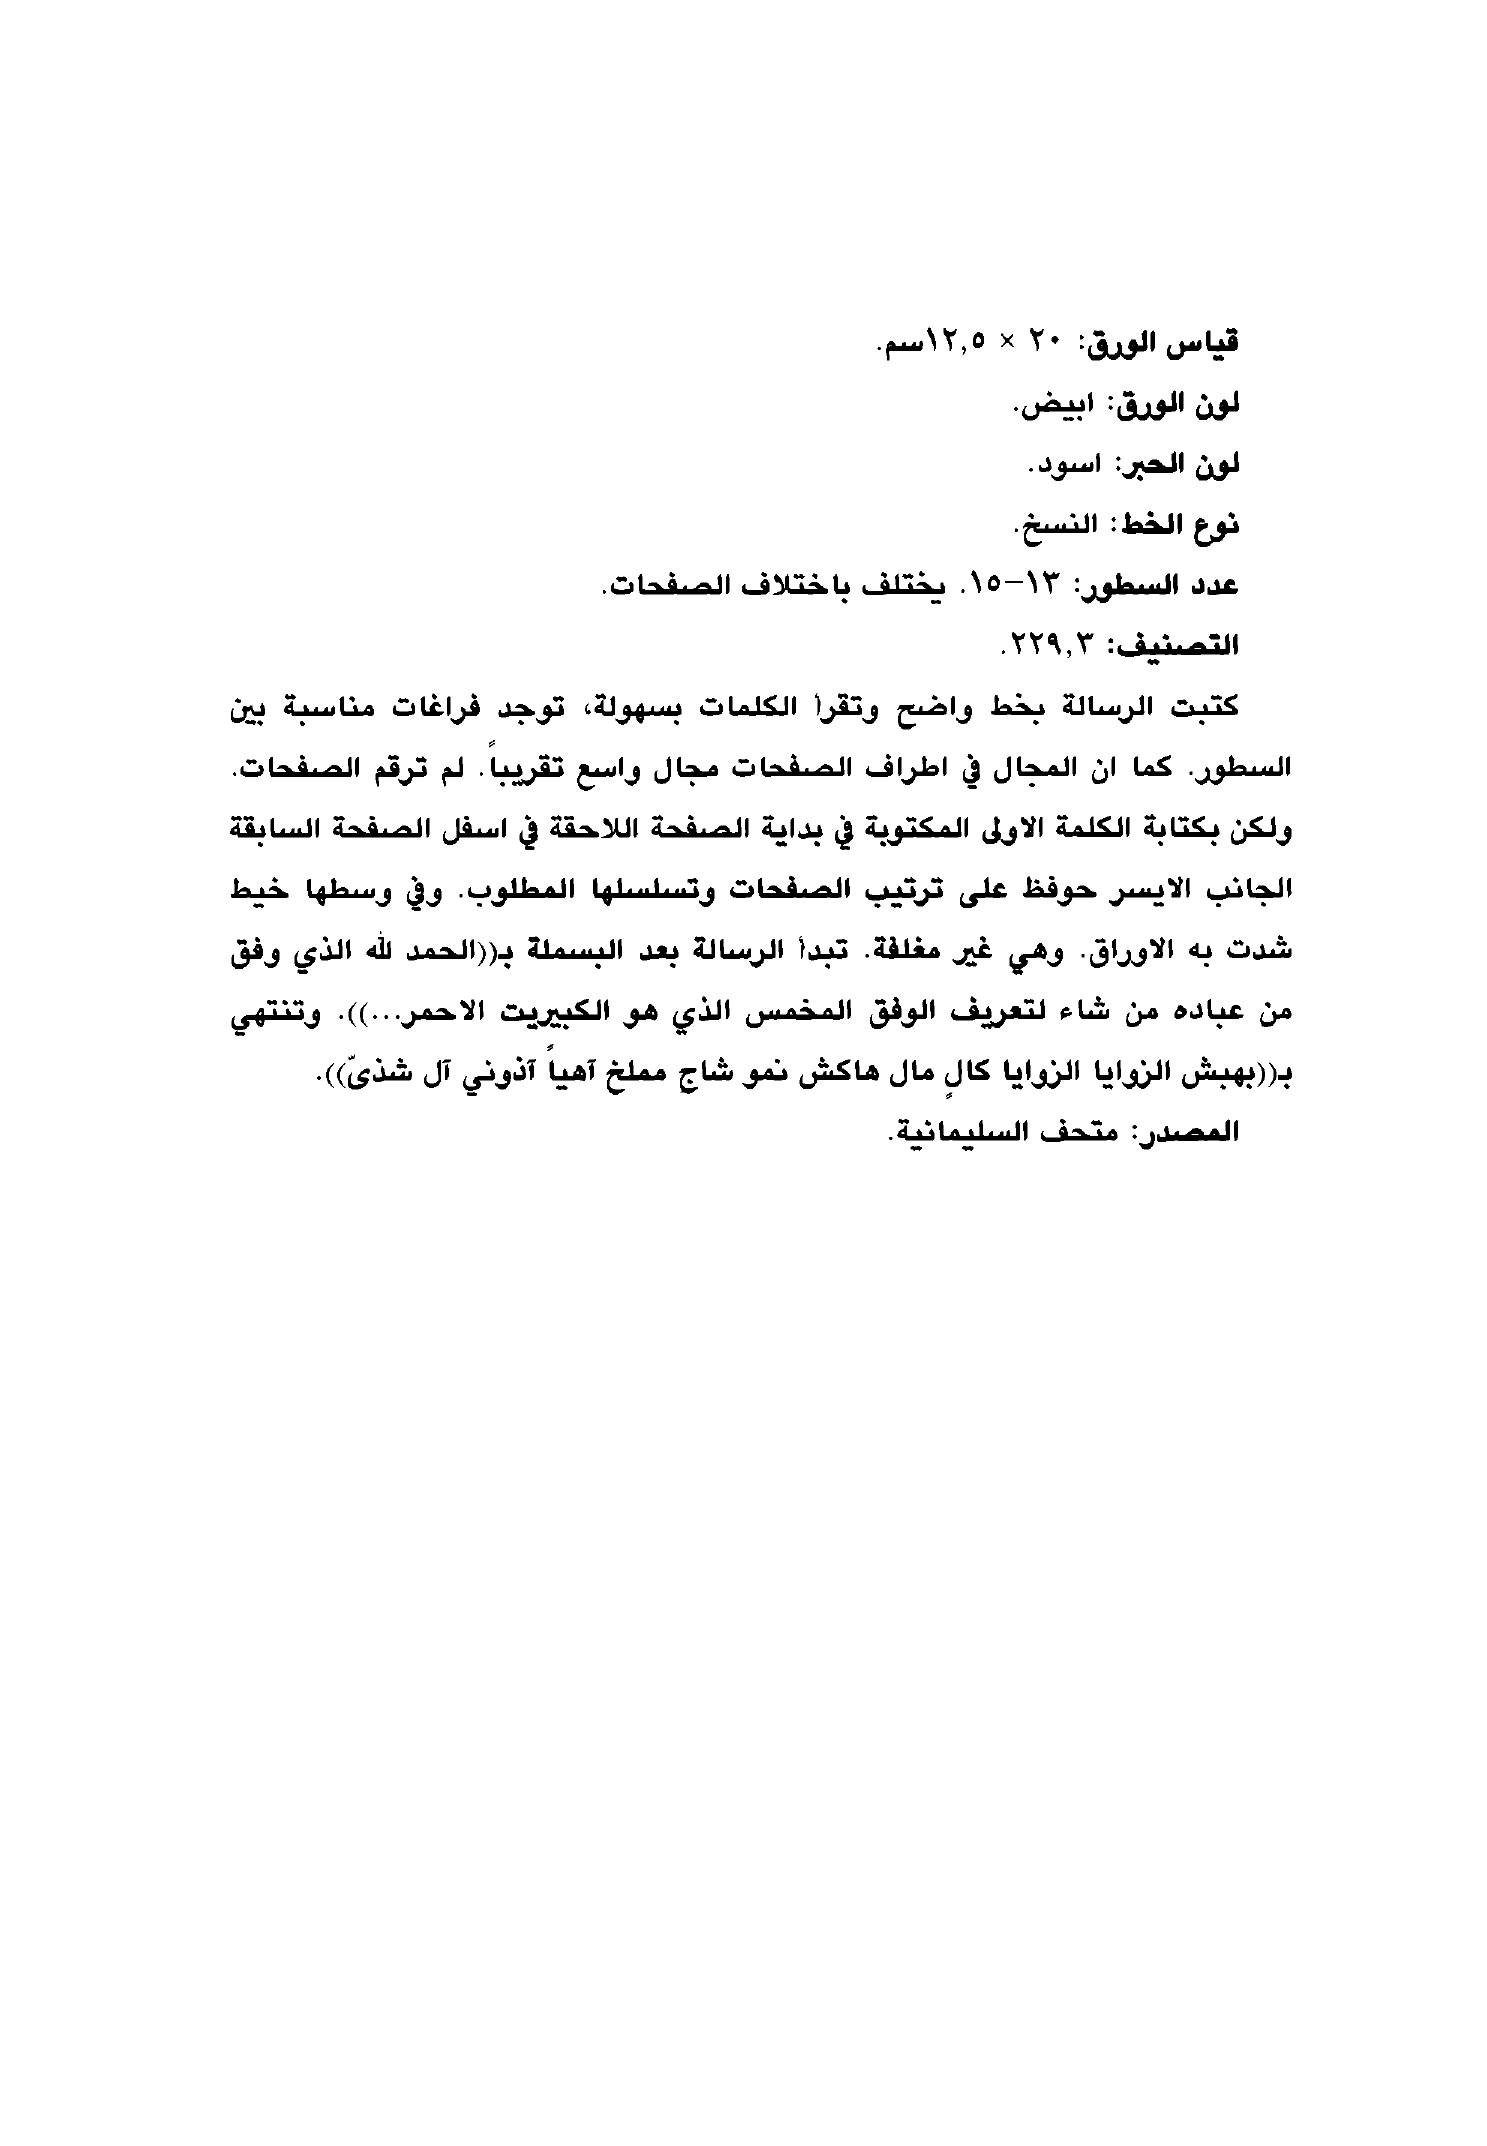 قياس الورق: ٢٠ × ١٢,٥سم.
لون الورق: ابيض.
لون الحبر: اسود.
نوع الخط: النسخ.
عدد السطور: ١٣-١٥. يختلف باختلاف الصفحات.
التصنيف: ٢٢٩,٣.
كتبت الرسالة بخط واضح وتقرأ الكلمات بسهولة، توجد فراغات مناسبة بين
السطور. كما ان المجال في اطراف الصفحات مجال واسع تقريباً. لم ترقم الصفحات.
ولكن بكتابة الكلمة الاولى المكتوبة في بداية الصفحة اللاحقة في اسفل الصفحة السابقة
الجانب الايسر حوفظ على ترتيب الصفحات وتسلسلها المطلوب. وفي وسطها خيط
شدت به الاوراق. وهي غير مغلفة. تبدأ الرسالة بعد البسملة بـ((الحمد لله الذي وفق
من عباده من شاء لتعريف الوفق المخمس الذي هو الكبيريت الاحمر...)). وتنتهي
بـ((بهبش الزوايا الزوايا كالٍ مال هاكش نمو شاج مملخ آهياً آذوني آل شذىّ)).
المصدر: متحف السليمانية.